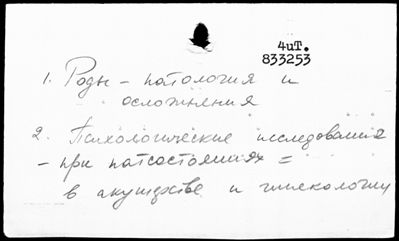 4иТ.
833253
1. Роды - патология и
осложнения
2. Психологические исследования
- при патсостояниях =
в акушерстве и гинекологии